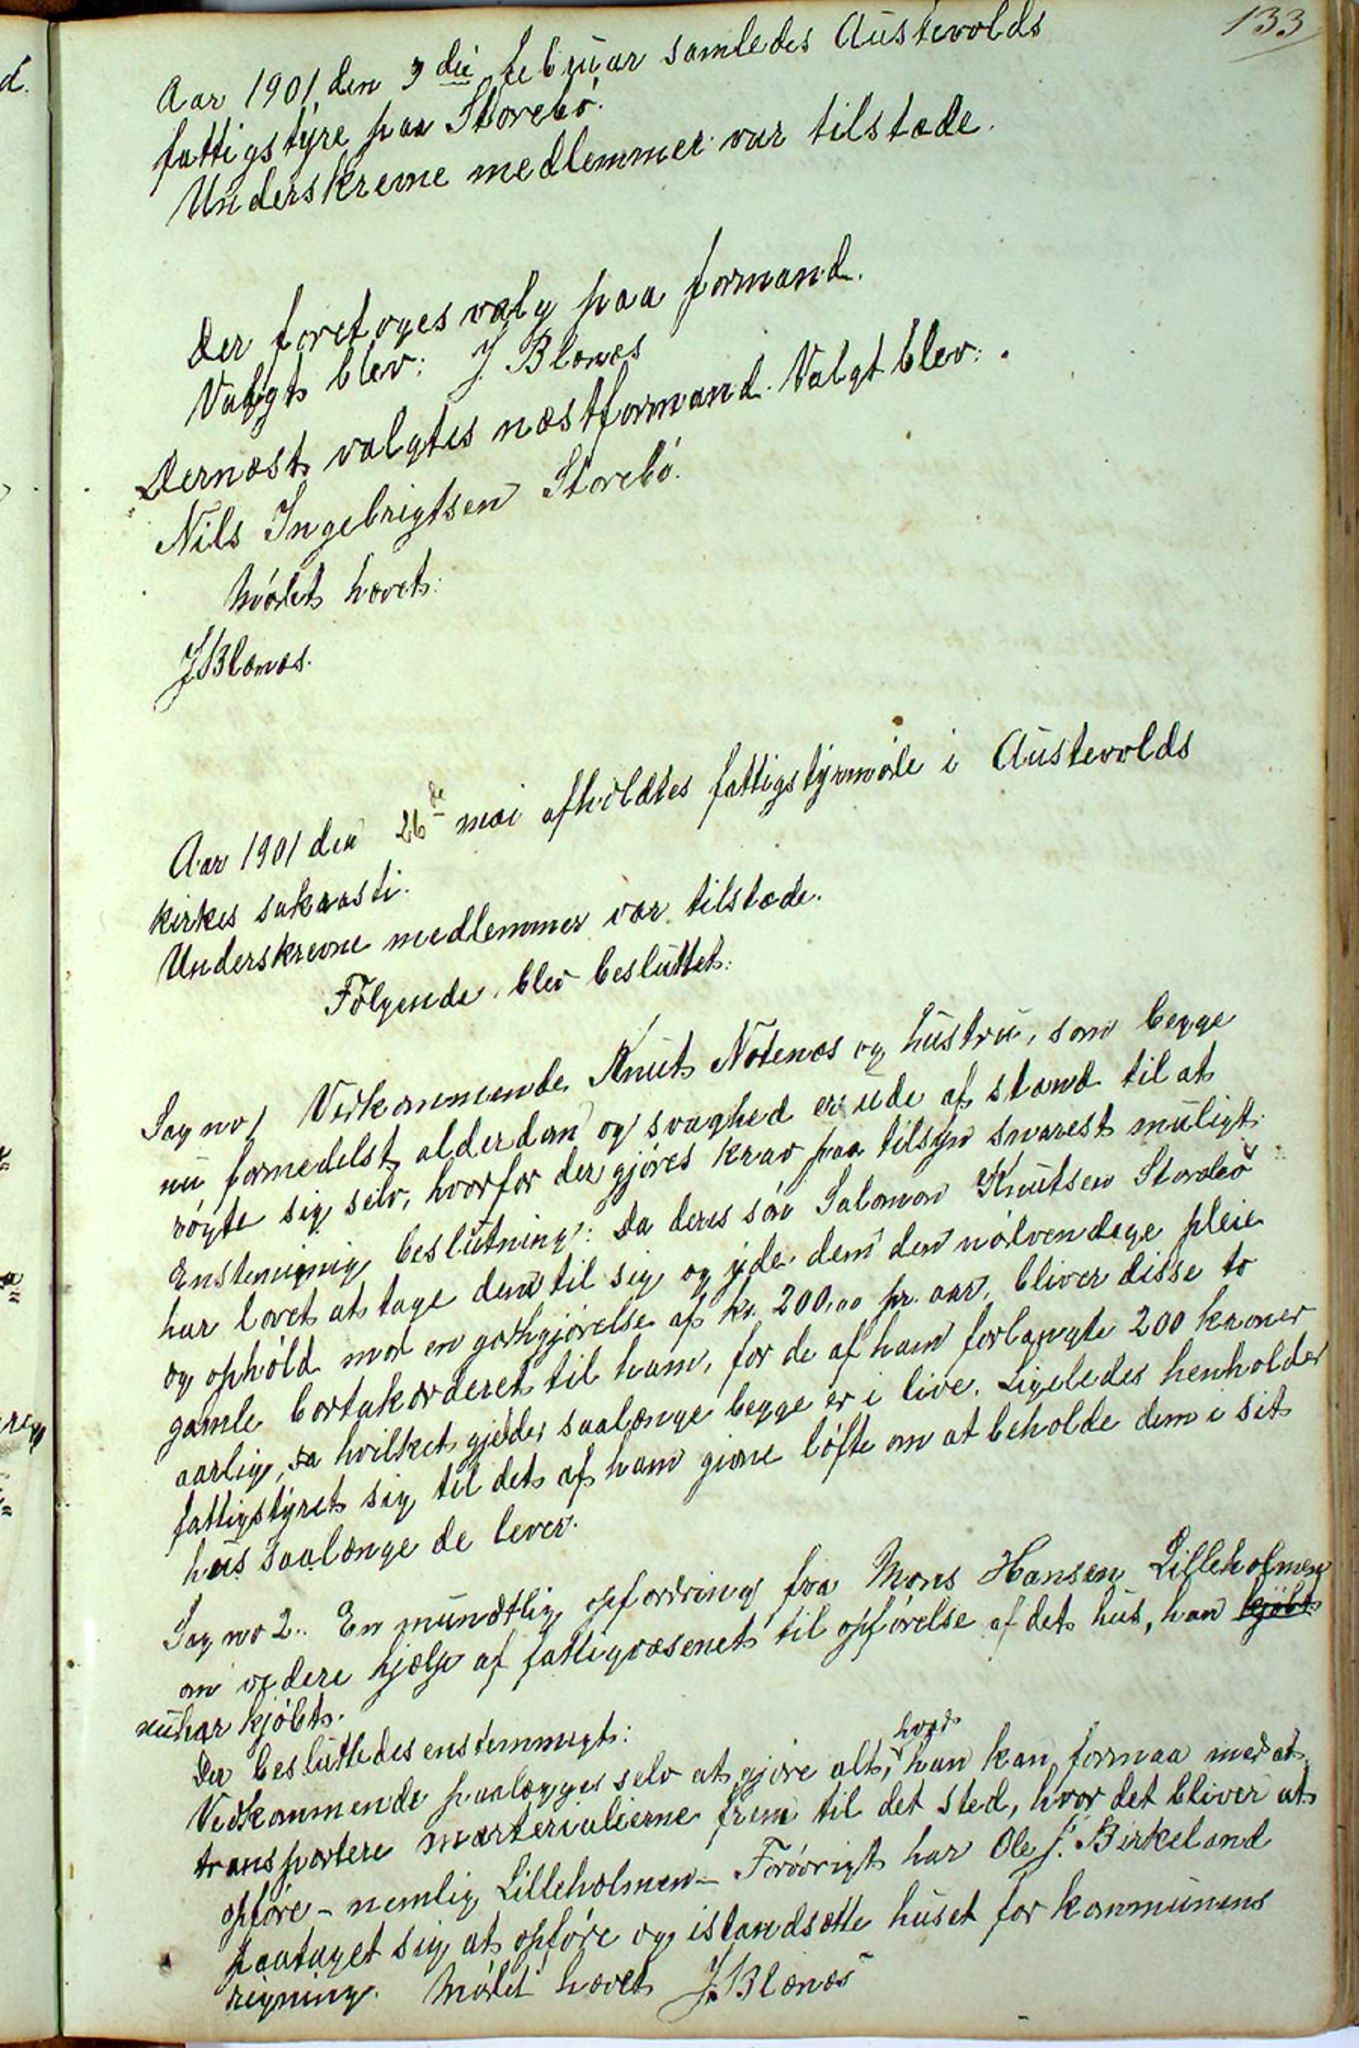 133
Aar 1901 den 3die februar samledes Austevolds
fattigstyre paa Storebö.
Underskrevne medlemmer var tilstæde.
Der foretoges valg paa formand.
Valgt blev: J Blænæs
Dernæst valgtes næstformand. Valgt blev:
Nils Ingebrigtsen Storebö.
Mödet hævet:
J Blænæs.
Aar 1901 den 26de mai afholdtes fattigstyrmöde i Austevolds
kirkes sakrasti.
Underskrevne medlemmer var tilstæde.
Fölgende blev besluttet:
Sag no 1 Vedkommende Knut Nötenæs og hustru, som begge
nu formedelst alderdom og svaghed er ude af stand til at
rögte sig selv, hvorfor der gjöres krav paa tilsyn snarest muligt.
Enstemmig beslutning: Da deres sön Salomon Knutsen Storebö
har lovet at tage dem til sig og yde dem den nödvendige pleie
og ophold mod en godtgjörelse af kr. 200,00 pr. aar, bliver disse to
gamle bortakorderet til ham, for de af ham forlangte 200 kroner
aarlig, hvilket gjelder saalænge begge er i live. Ligeledes henholder
fattigstyret sig til det af ham givne löfte om at beholde dem i sit
hus saalænge de lever.
Sag no 2. En mundtlig opfordring fra Mons Hansen Lilleholmen
om videre hjælp af fattigvæsenet til opförelse af det hus, han kjöbt
nu har kjöbt.
Der besluttedes enstemmigt:
Vedkommende paalægges selv at gjöre alt, hvad han kan formaa med at
transportere materialierne frem til det sted, hvor det bliver at
opföre - nemlig Lilleholmen - Forövrigt har Ole J. Birkeland
paataget sig at opföre og istandsætte huset for kommunens
regning. Mödet hævet J. Blænæs